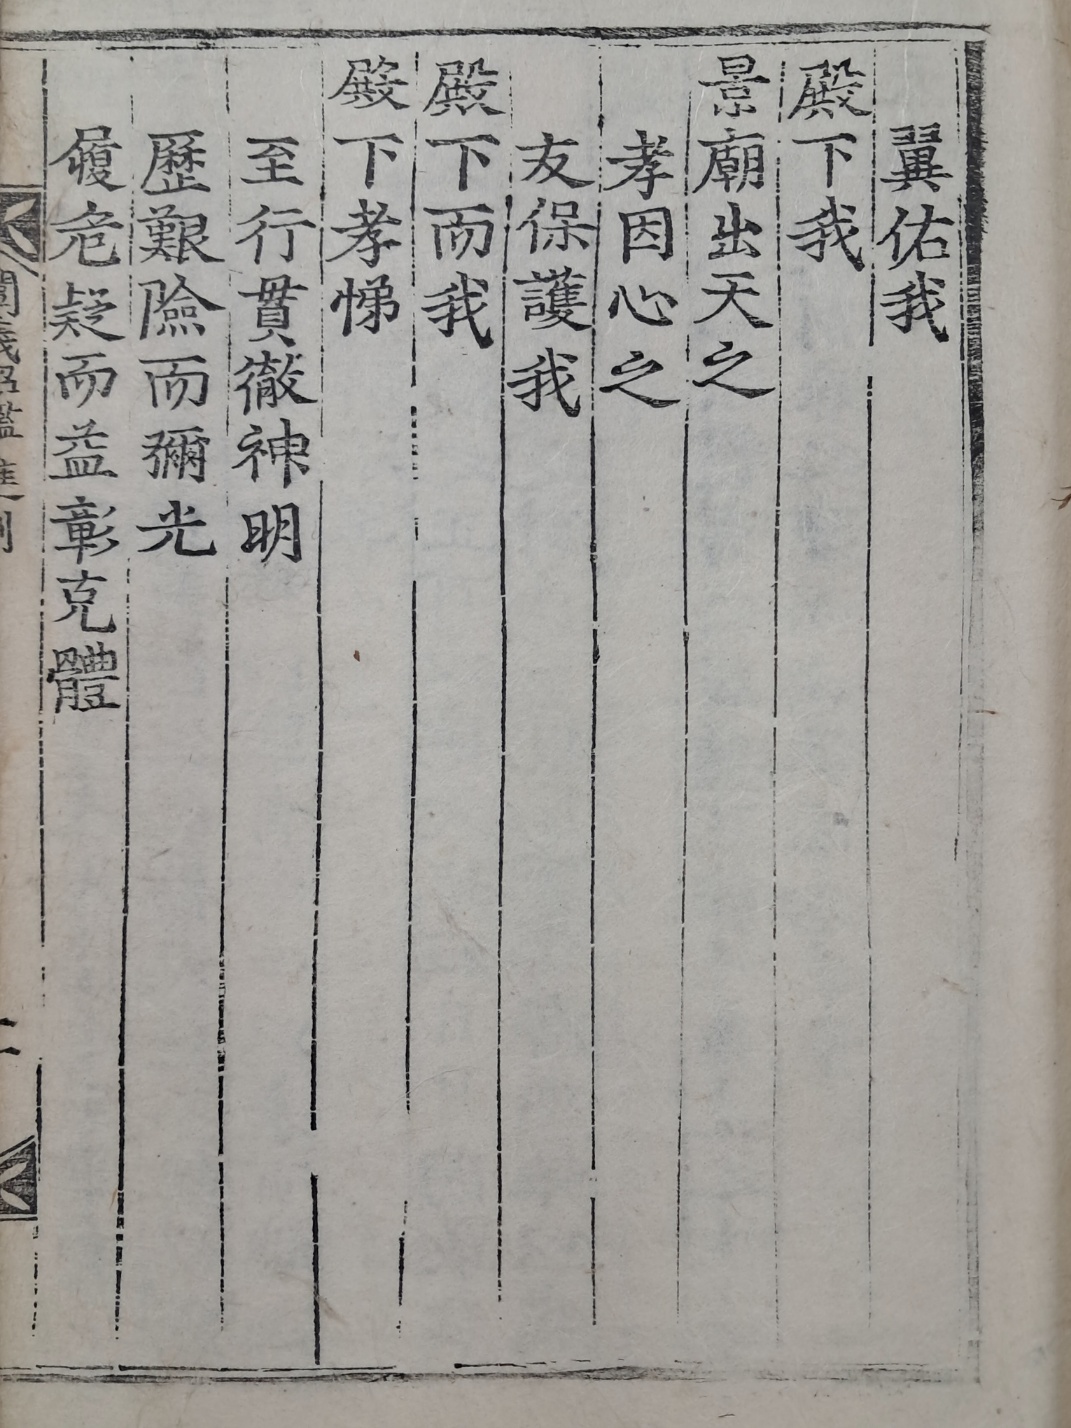 翼佑我
殿下我
景廟出天之
孝因心之
友保護我
殿下而我
殿下孝悌
至行貫徹神明
歷艱險而彌光
履危疑而益彰克體
闡義昭鑑進剳